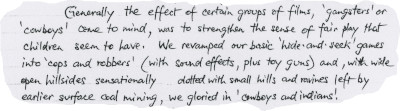 Generally the effect of certain groups of films, 'gangsters' or
'cowboys' come to mind, was to strengthen the sense of fair play that
children seem to have. We revamped our basic 'hide-and-seek' games
into 'cops and robbers' (with sound effects, plus toy guns) and, with wide
open hillsides sensationally dotted with small hills and ravines left by
earlier surface coal mining, we gloried in 'cowboys and indians'.